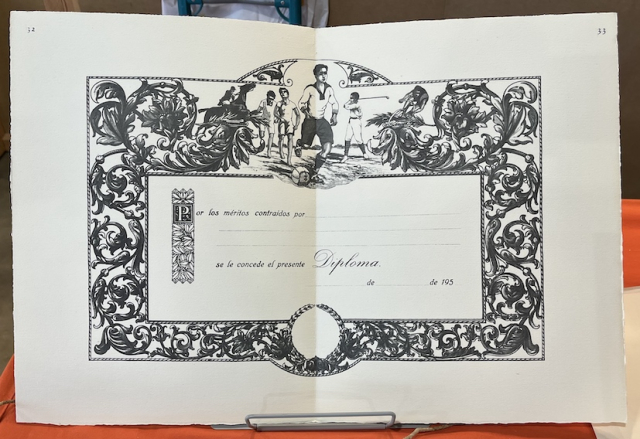 32
33
Por los méritos contraídos por
se le concede el presente Diploma.
de de 195